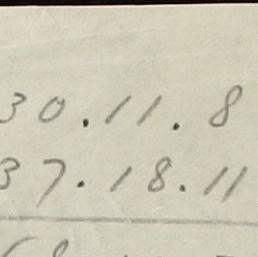 30.11.8
37.18.11